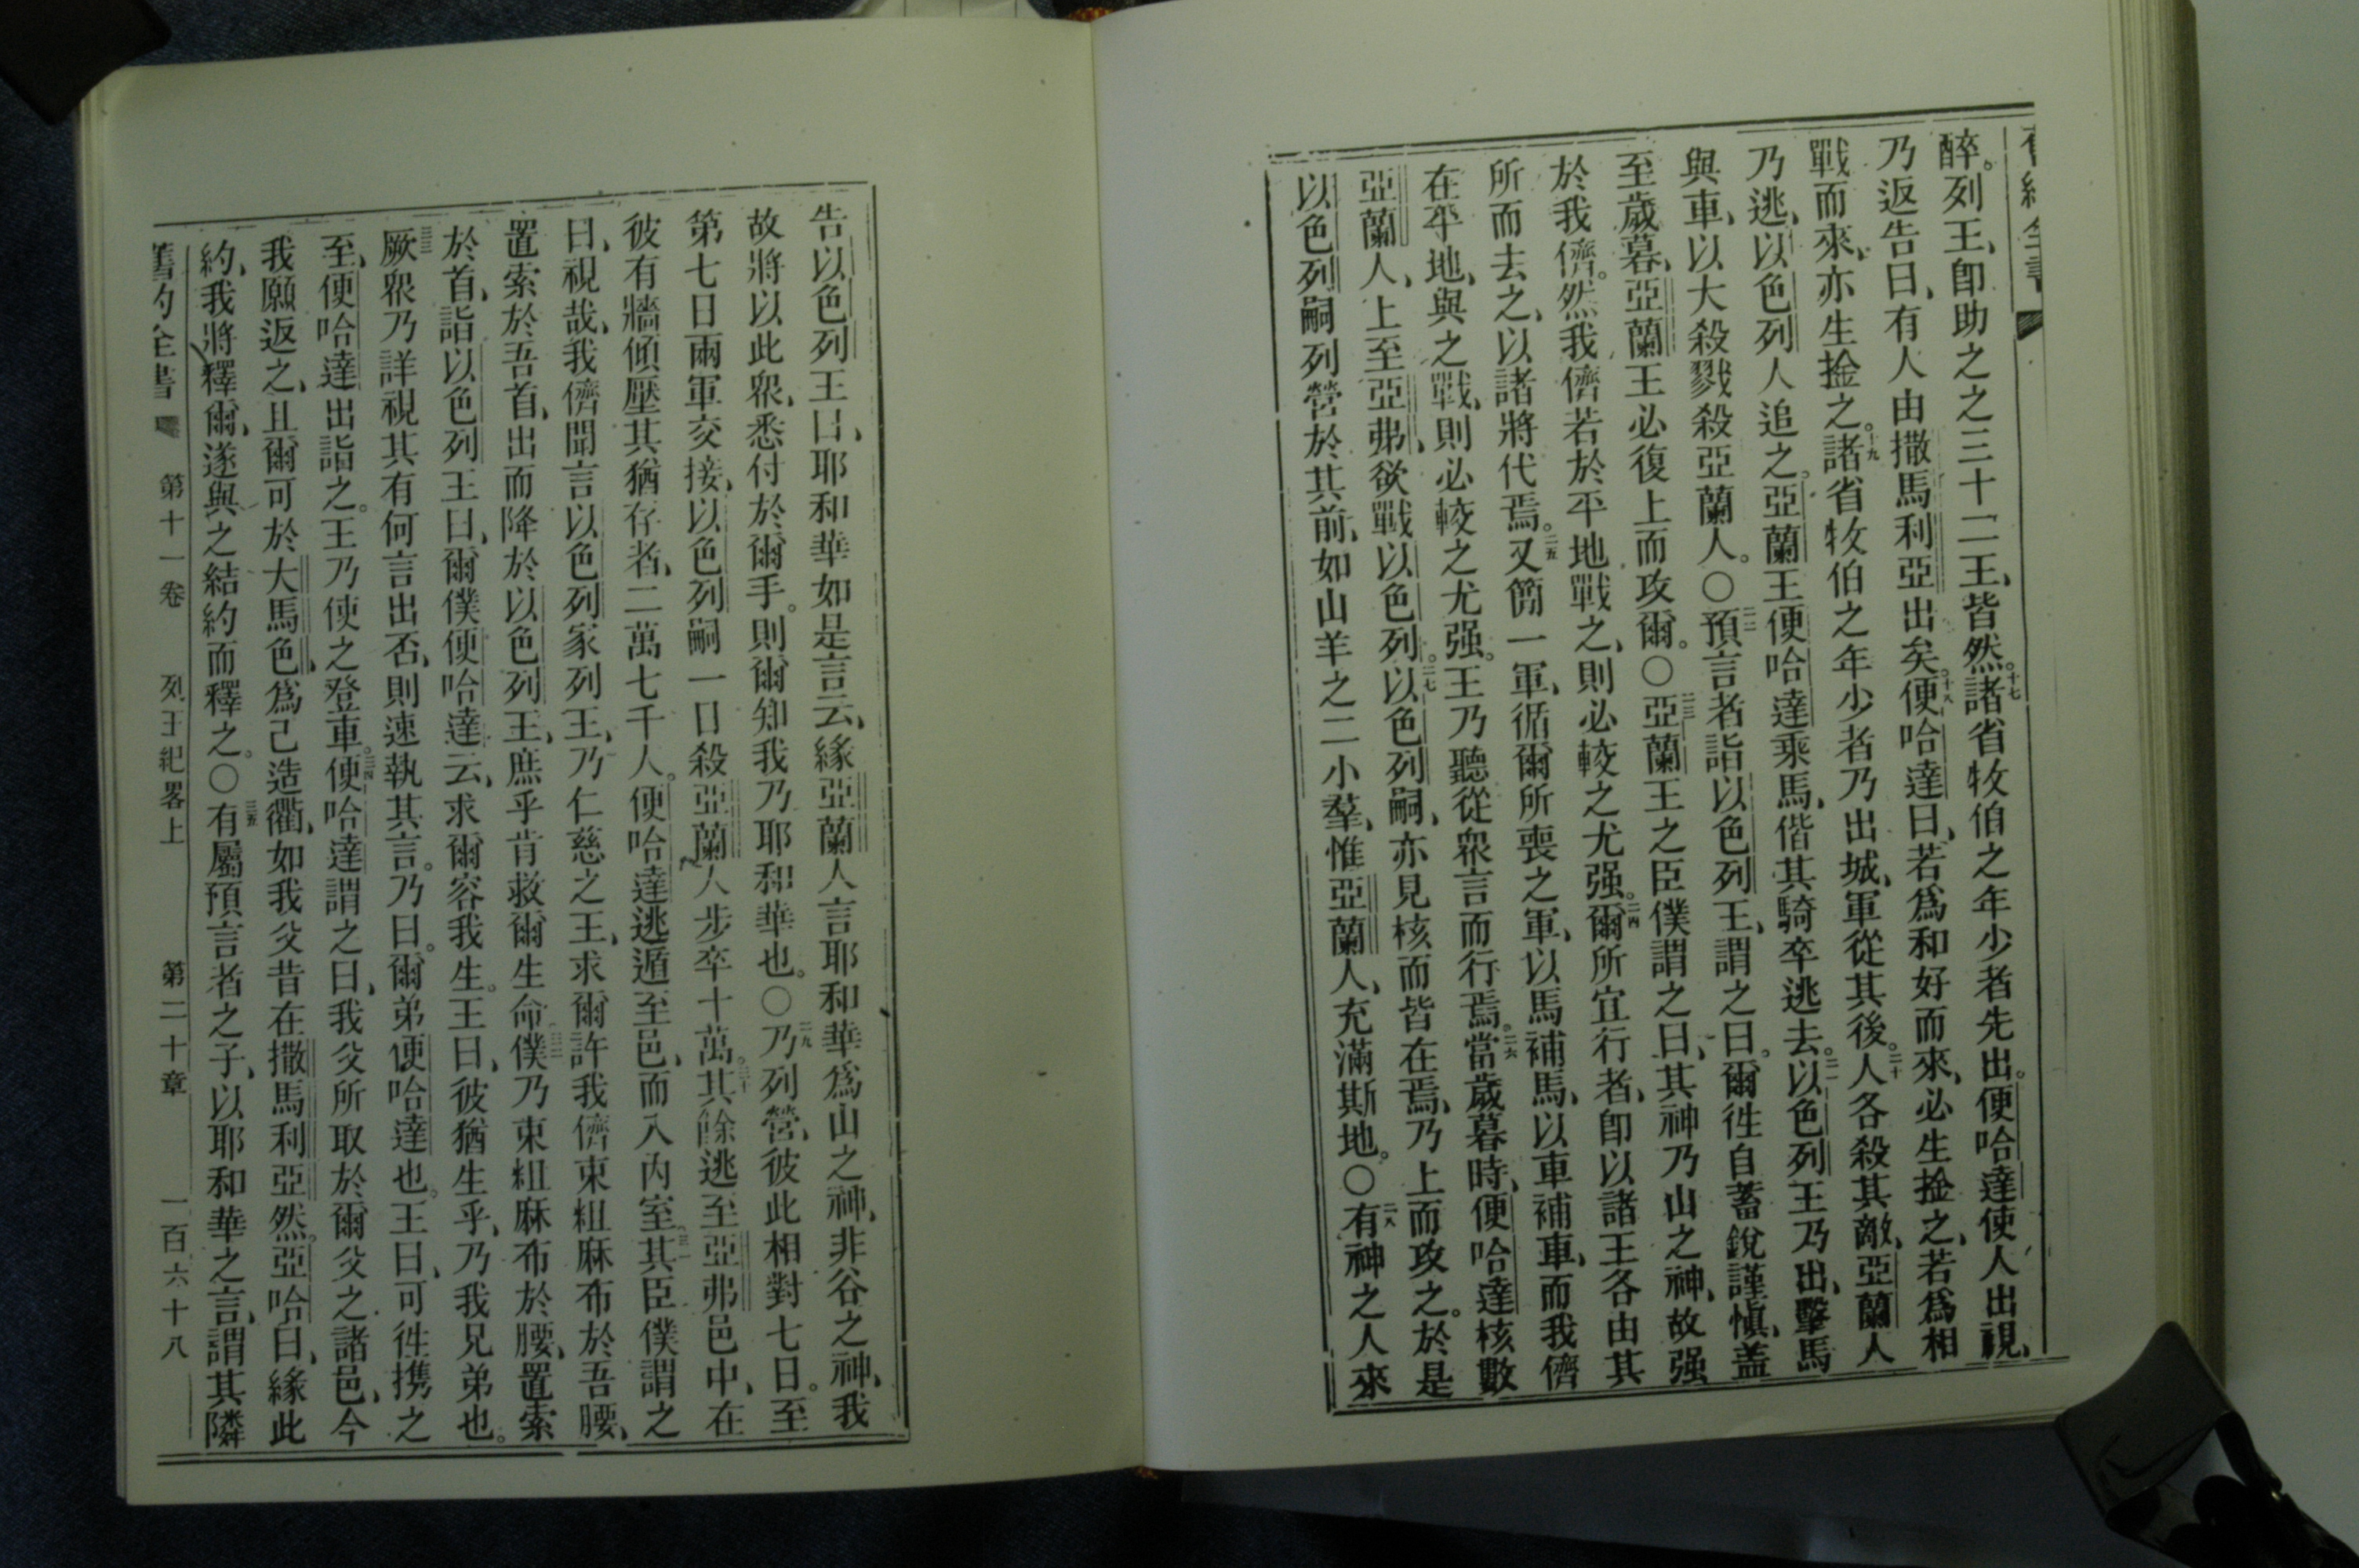 醉。列王、卽助之之三十二王、皆然。十七諸省牧伯之年少者先出。便哈達使人出視、
乃返告曰、有人由撒馬利亞出矣。十八便哈達曰、若爲和好而來、必生擒之、若爲相
戰而來、亦生擒之。十九諸省牧伯之年少者乃出城、軍從其後。二十人各殺其敵、亞蘭人
乃逃、以色列人追之。亞蘭王便哈達乘馬、偕其騎卒逃去。二一以色列王乃出、擊馬
與車、以大殺戮殺亞蘭人。○二二預言者詣以色列王、謂之曰。爾徃自蓄銳謹愼、蓋
至歲暮、亞蘭王必復上而攻爾。○二三亞蘭王之臣僕謂之曰、其神乃山之神、故强
於我儕。然我儕若於平地戰之、則必較之尤强。二四爾所宜行者、卽以諸王各由其
所而去之、以諸將代焉。二五又簡一軍、循爾所喪之軍、以馬補馬、以車補車、而我儕
在平地、與之戰、則必較之尤强。王乃聽從眾言而行焉。二六當歲暮時、便哈達核數
亞蘭人、上至亞弗、欲戰以色列。二七以色列嗣、亦見核而皆在焉、乃上而攻之。於是
以色列嗣列營於其前、如山羊之二小羣、惟亞蘭人、充滿斯地。○二八有神之人來
告以色列王曰、耶和華如是言云、緣亞蘭人言耶和華爲山之神、非谷之神、我
故將以此眾、悉付於爾手。則爾知我乃耶和華也。○二九乃列營、彼此相對七日。至
第七日兩軍交接、以色列嗣一日殺亞蘭人步卒十萬。三十其餘逃至亞弗邑中、在
彼有牆傾壓其猶存者、二萬七千人。便哈達逃遁至邑、而入內室。三一其臣僕謂之
曰、視哉、我儕聞言以色列家列王、乃仁慈之王、求爾許我儕束粗麻布於吾腰、
置索於吾首、出而降於以色列王、庶乎肯救爾生命。三二僕乃束粗麻布於腰、置索
於首、詣以色列王曰、爾僕便哈達云、求爾容我生。王曰、彼猶生乎、乃我兄弟也。
三三厥眾乃詳視其有何言出否、則速執其言。乃曰。爾弟便哈達也。王曰、可徃携之
至、便哈達出詣之。王乃使之登車。三四便哈達謂之曰、我父所取於爾父之諸邑、今
我願返之、且爾可於大馬色、爲己造衢、如我父昔在撒馬利亞然。亞哈曰、緣此
約、我將釋爾、遂與之結約而釋之。○三五有屬預言者之子、以耶和華之言、謂其隣
舊約全書 第十一卷 列王紀畧上 第二十章 一百六十八